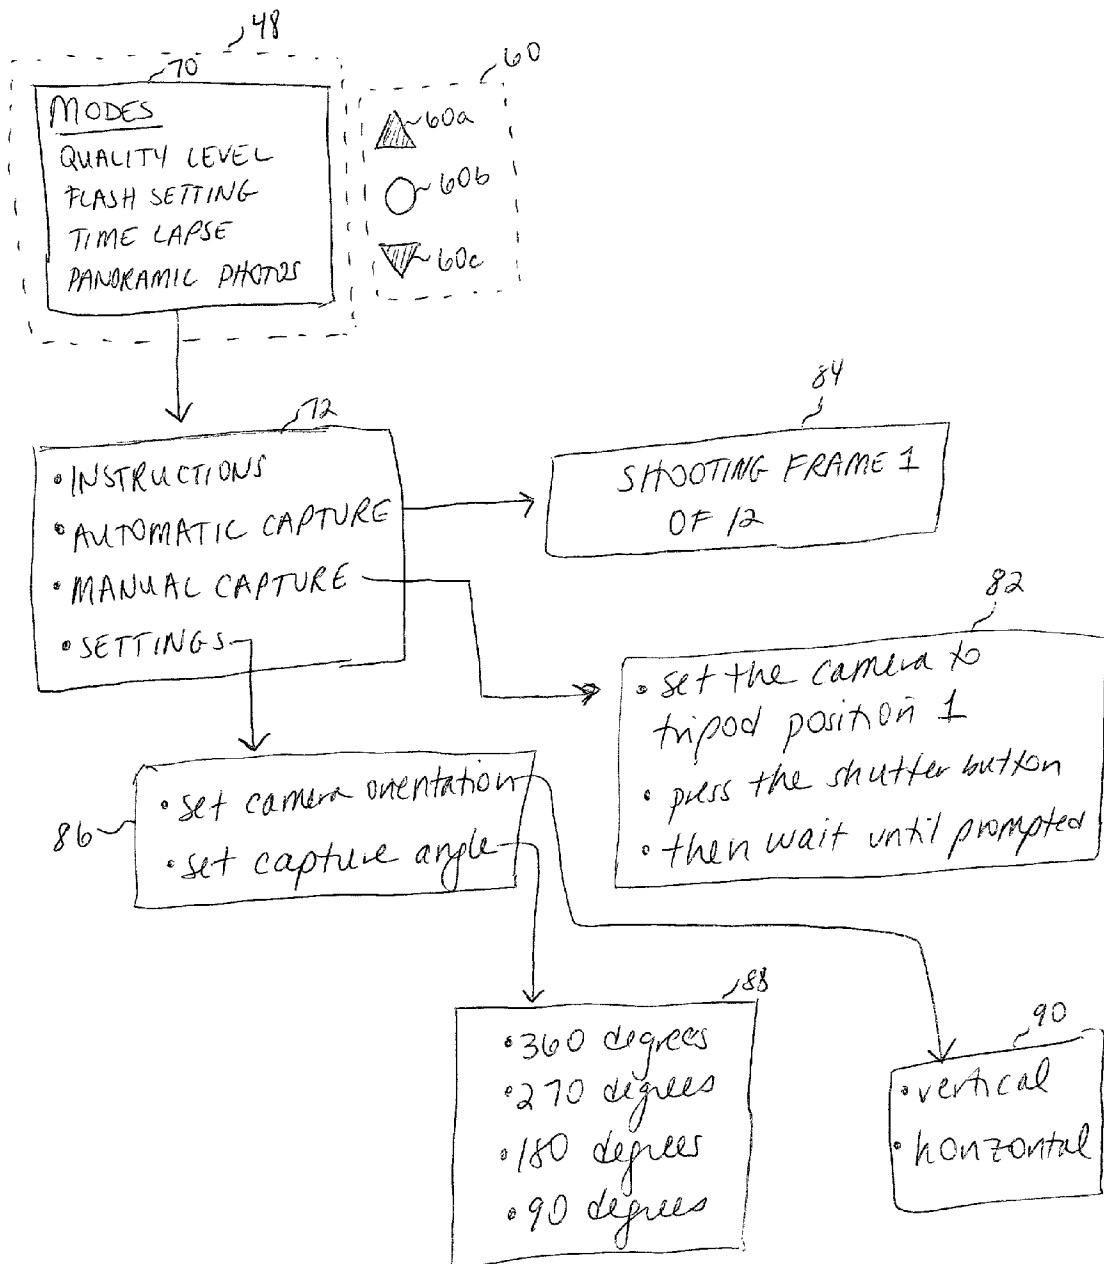 48
70
MODES
QUALITY LEVEL
FLASH SETTING
TIME LAPSE
PANORAMIC PHOTOS
60
60a
60b
60c
72
• INSTRUCTIONS
• AUTOMATIC CAPTURE
• MANUAL CAPTURE
• SETTINGS
84
SHOOTING FRAME 1
OF 12
82
• set the camera to
tripod position 1
• press the shutter button
• then wait until prompted
86
• set camera orientation
• set capture angle
88
• 360 degrees
• 270 degrees
• 180 degrees
• 90 degrees
90
• vertical
• horizontal